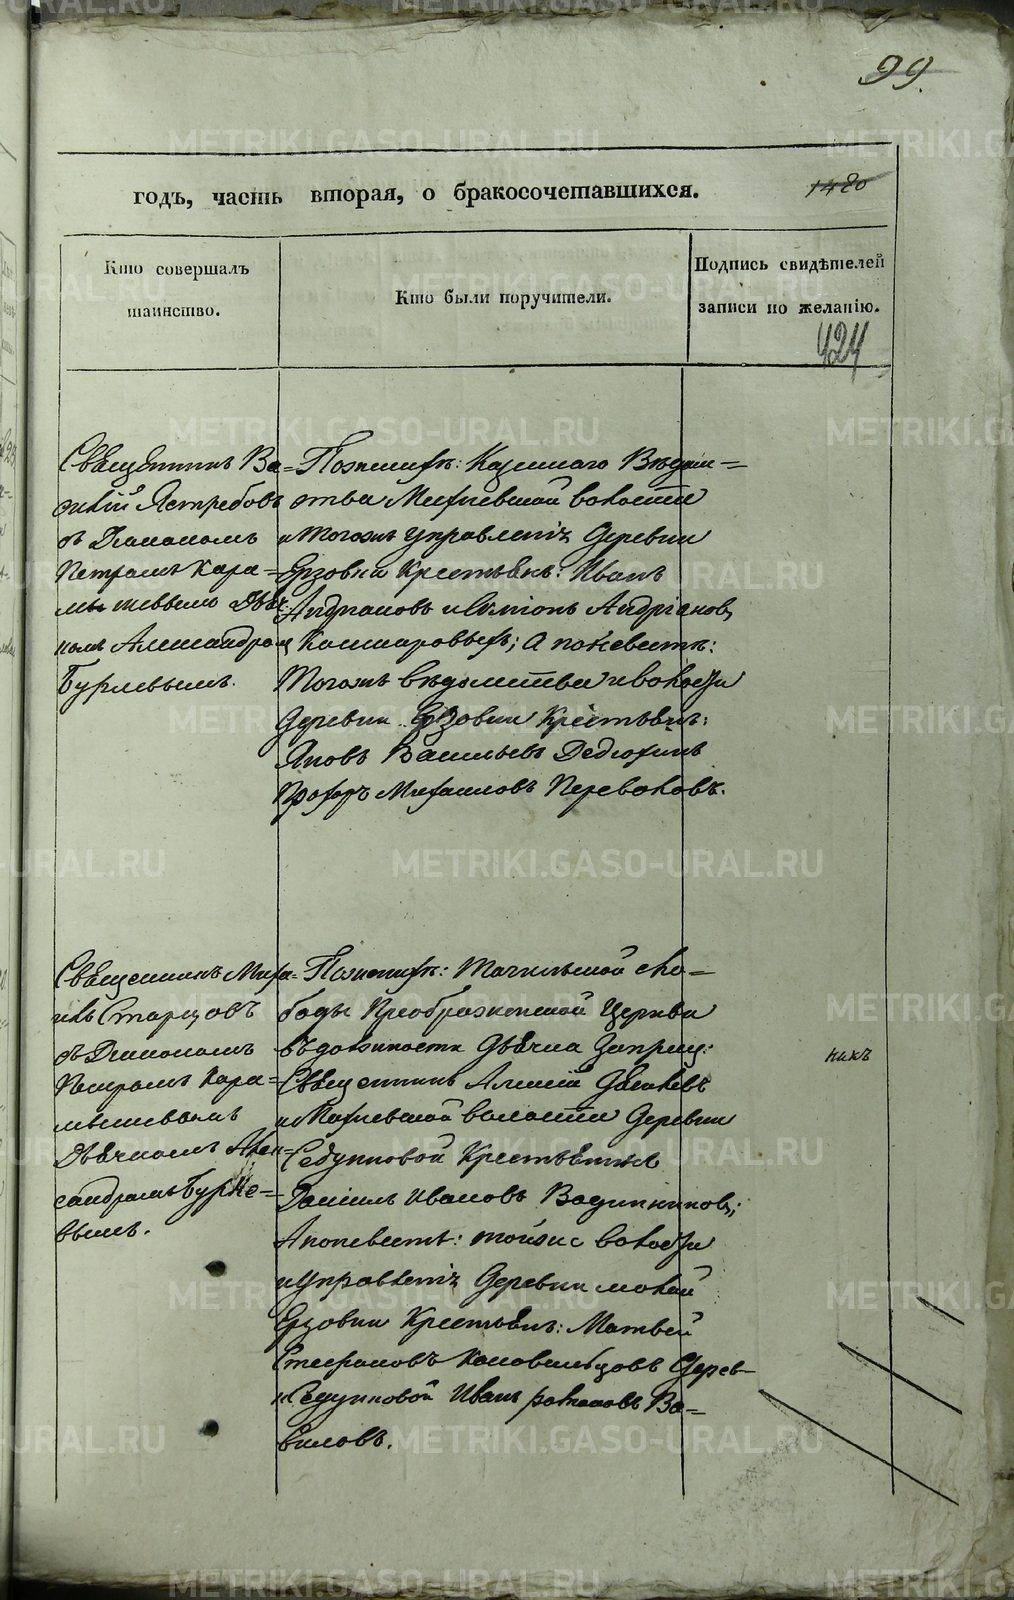 99.
годъ, часть вторая, о бракосочетавшихся.
1480
Кто совершалъ
таинство.
Кто были поручители.
Подпись свидѣтелей
записи по желанію.
424
Священникъ Ва=
силій Ястребовъ
съ Діакономъ
Петромъ Кара=
мышевымъ Дьяч
комъ Александром
Бурлевымъ.
По женихѣ: Казеннаго Вѣдом=
ства волости
и тогожъ управленія Деревни
Ерзовки Крестьянъ: Иванъ
Андріановъ и Андріановъ
Кашкаровыхъ; а по невестѣ:
Тогожъ вѣдомства и волости
Деревни Ерзовки Крестьянъ:
Яковъ Васильевъ Дедюхинъ
Прохоръ Михаиловъ Переваловъ.
Священникъ Миха=
илъ Старцовъ
съ Діакономъ
Петромъ Кара=
мышевымъ
Дьячкомъ Алек=
сандромъ Бурле=
вымъ.
По женихѣ: Точильной сло=
боды Преображенской Церкви
въ должности Дьячка Запрещ:
Священникъ Алексій
и волости Деревни
Крестьянинъ
Данилъ Ивановъ
А по невестѣ: тойже волости
и управленія Деревни малой
Ерзовки Крестьянъ: Матвей
Стефановъ Коновальцовъ Дерев=
Иванъ Ва=
виловъ.
никъ
METRIKI.GASO-URAL.RU